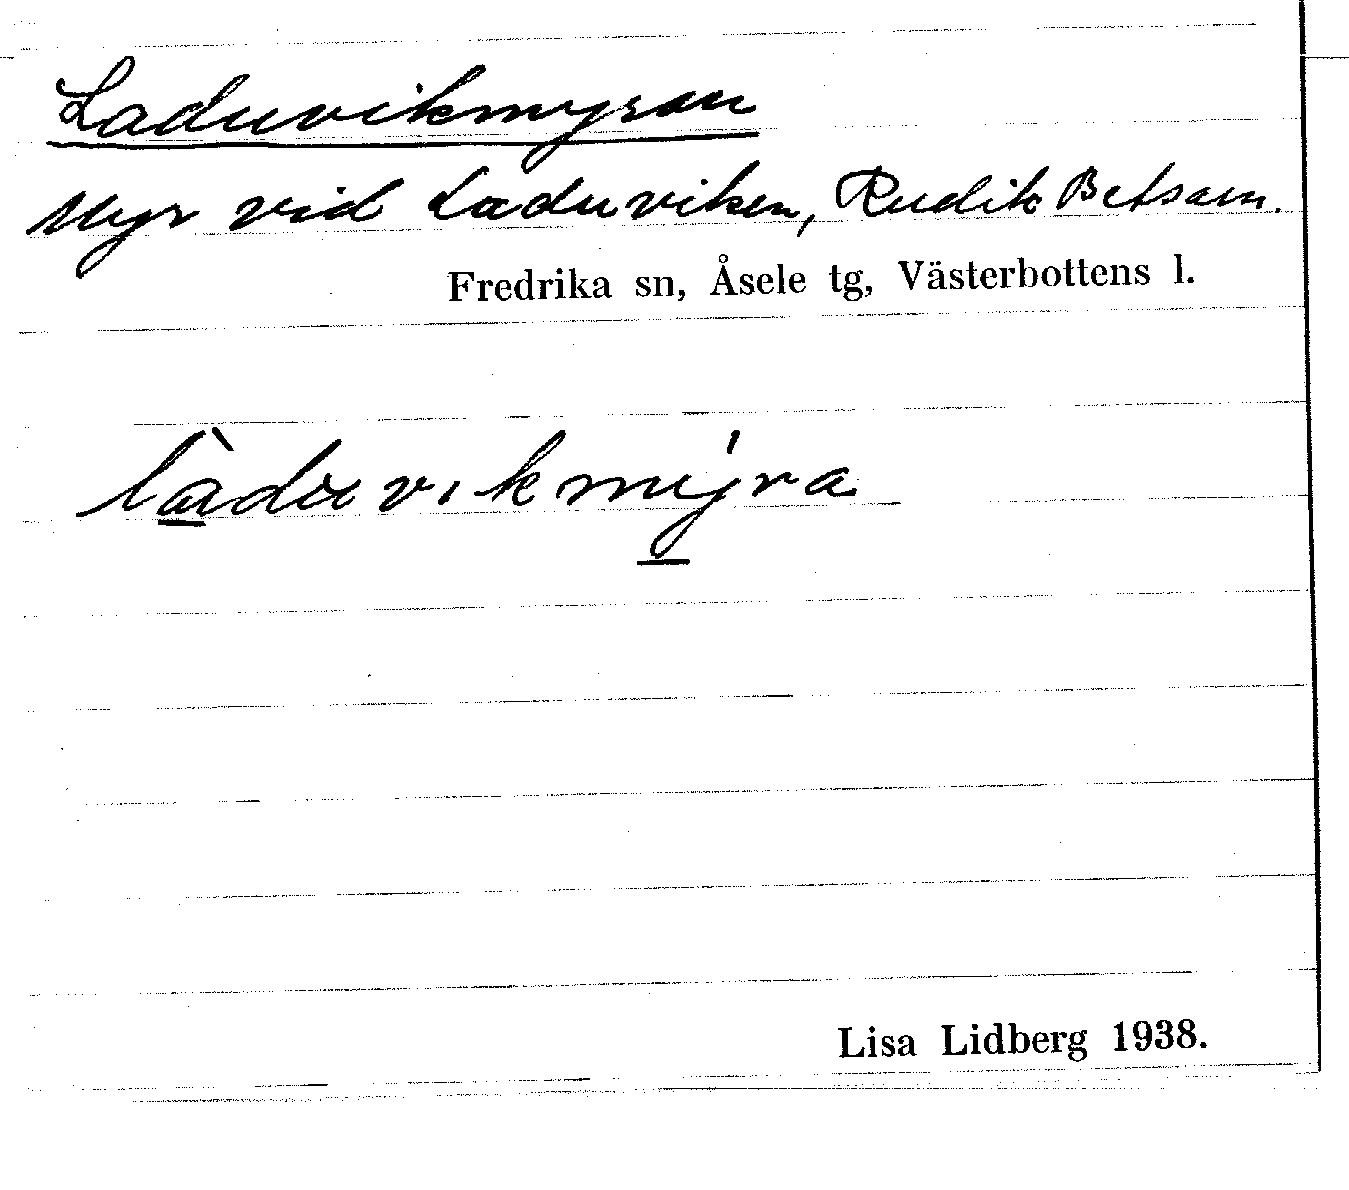 Laduvikmyran
Myr vid Laduviken, Rudik Betsam.
Fredrika sn, Åsele tg, Västerbottens l.
Lisa Lidberg 1938.